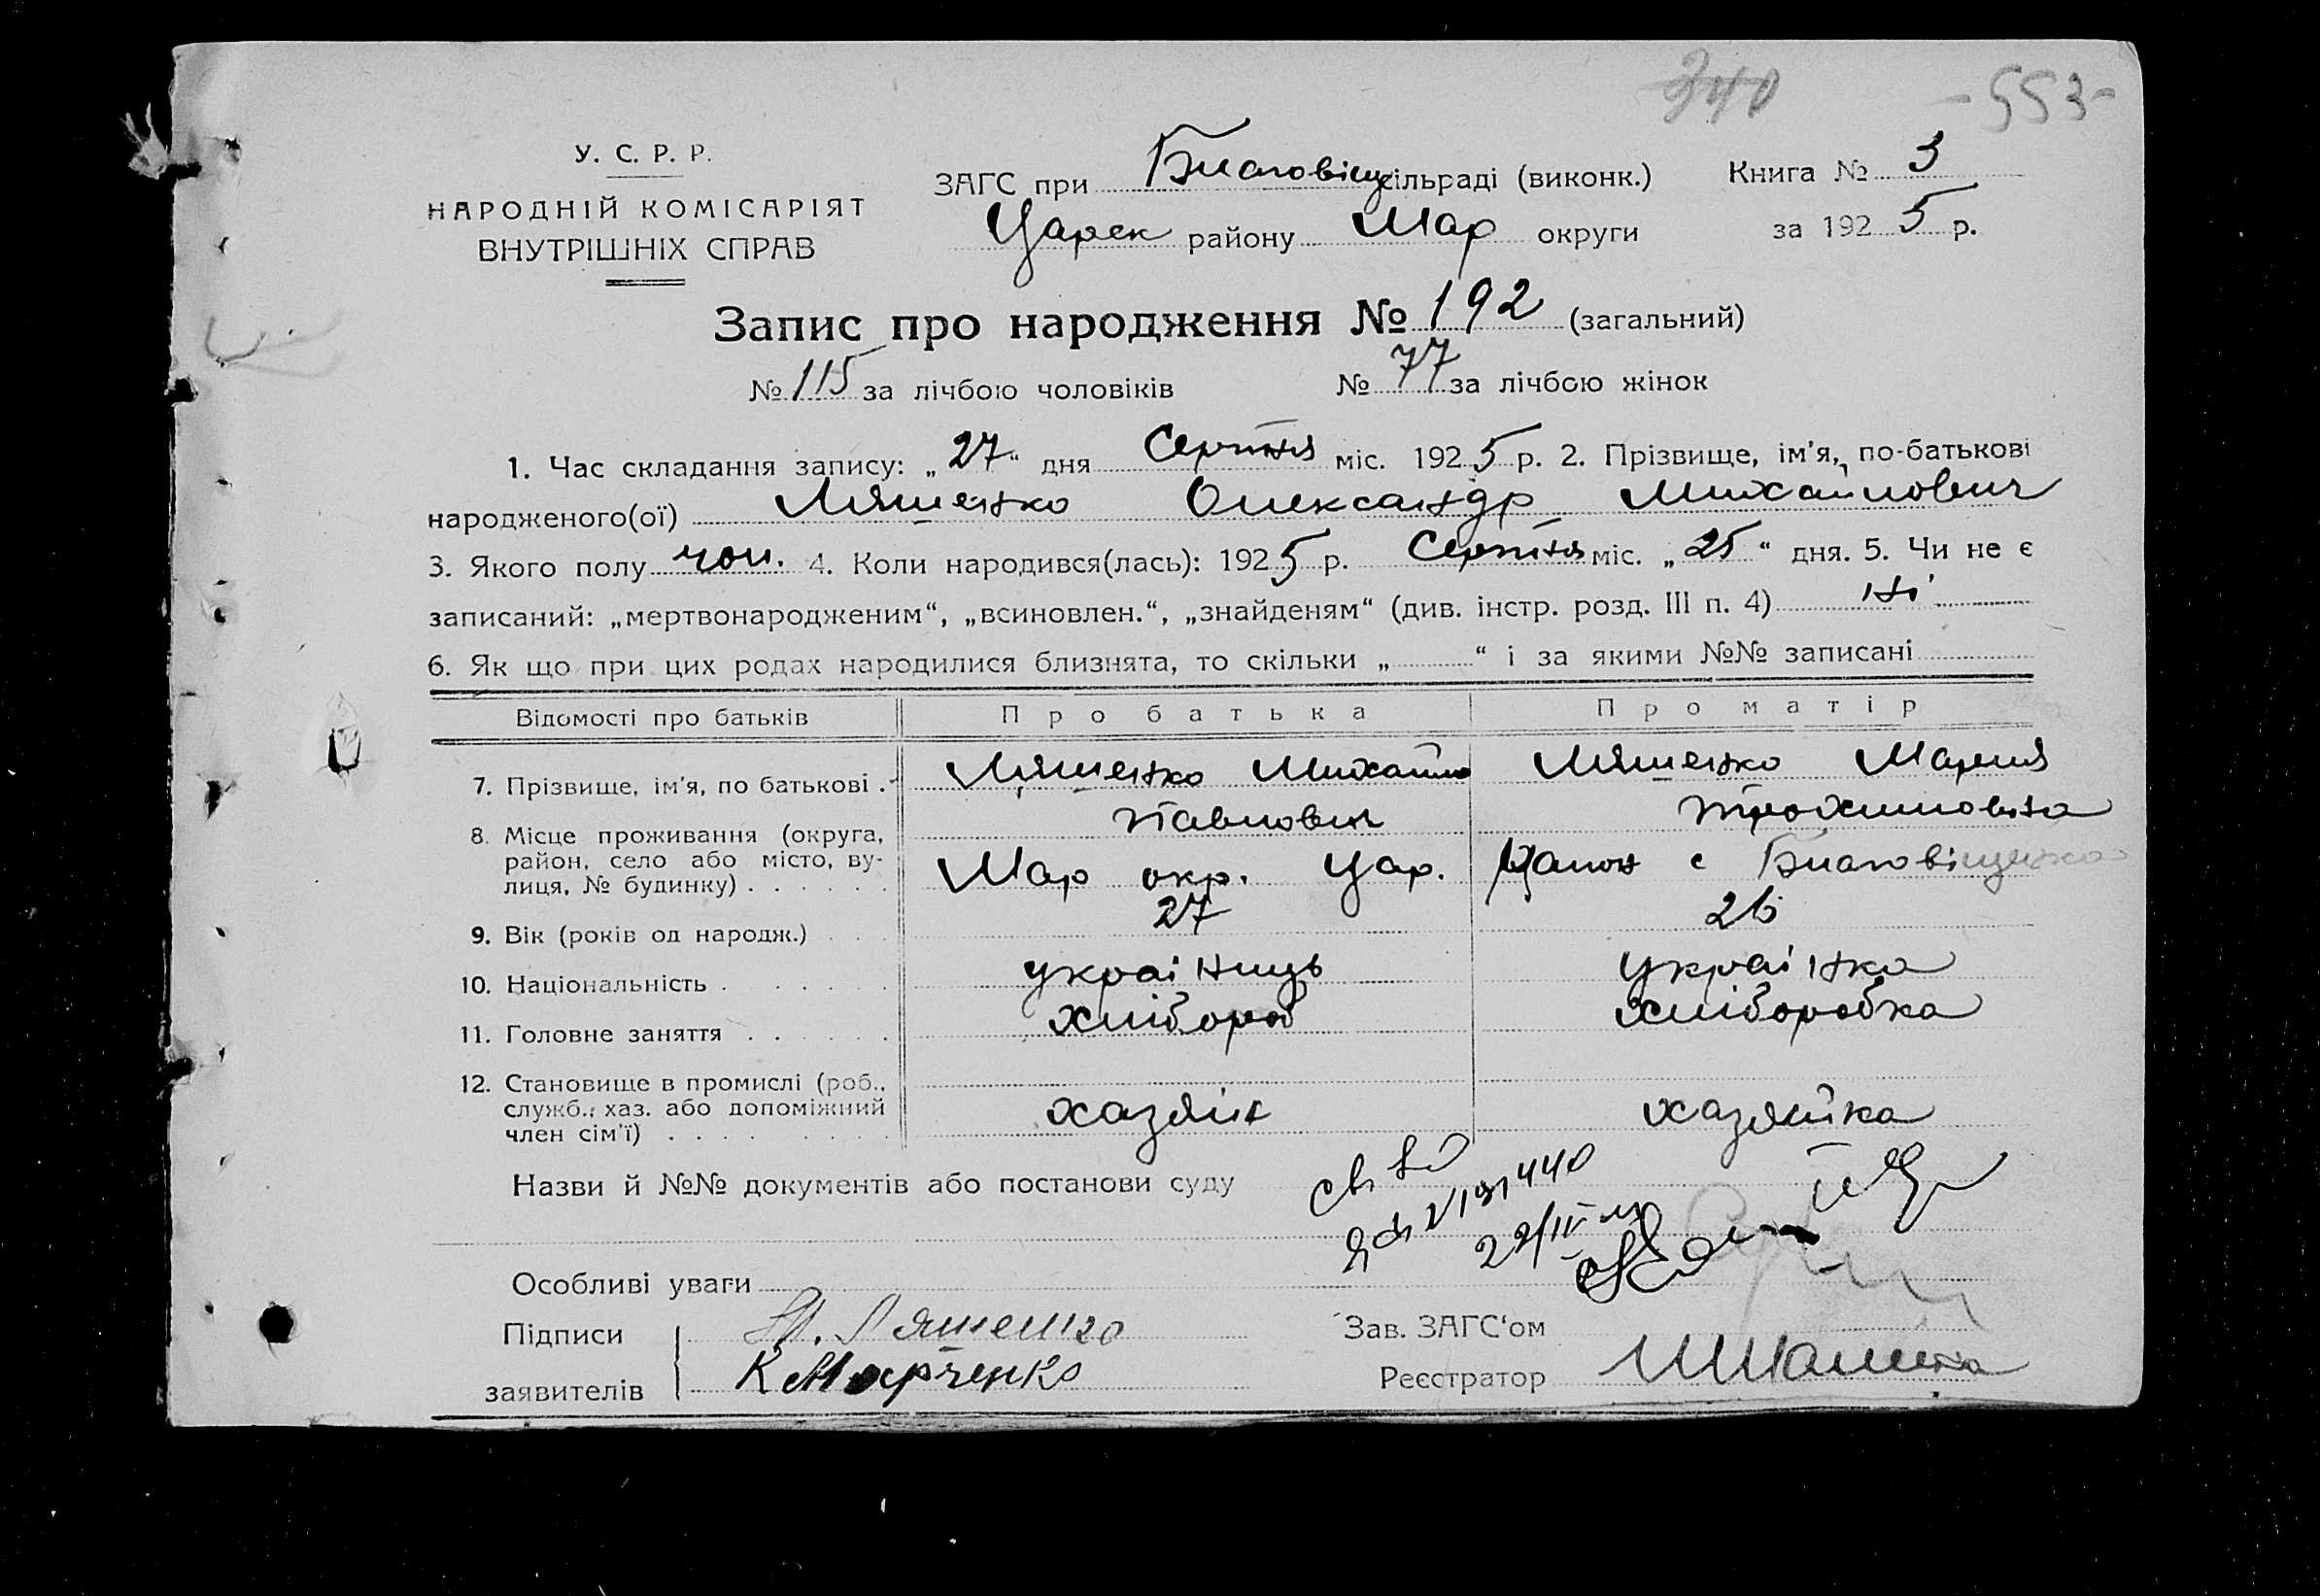 340 -553-
У. С. Р. Р.
НАРОДНІЙ КОМІСАРІЯТ
ВНУТРІШНІХ СПРАВ
ЗАГС при Благовіщ сільраді (виконк.) Книга № 3
Царек району Мар округи за 1925 р.
Запис про народження № 192 (загальний)
№ 115 за лічбою чоловіків № 77 за лічбою жінок
1. Час складання запису: „27“ дня Серпня міс. 1925 р. 2. Прізвище, ім'я, по-батькові
народженого(ої) Ляшенко Олександр Михайлович
3. Якого полу чол. 4. Коли народився(лась): 1925 р. Серпня міс. „25“ дня. 5. Чи не є
записаний: „мертвонародженим“, „всиновлен.“, „знайденям“ (див. інстр. розд. III п. 4) ні
6. Як що при цих родах народилися близнята, то скільки „ “ і за якими №№ записані
Відомості про батьків Про батька Про матір
7. Прізвище, ім'я, по батькові . Ляшенко Михайло Ляшенко Мария
Павлович Трохимовна
8. Місце проживання (округа, район, село або місто, вулиця, № будинку) . . . . . . Мар окр. Цар. район с Благовіщенка
9. Вік (років од народж.) . . . 27 25
10. Національність . . . . . . украінець украінка
11. Головне заняття . . . . . . хлібороб хліборобка
12. Становище в промислі (роб., служб., хаз. або допоміжний член сім'ї) . . . . . . . . хазяїн хазяйка
Назви й №№ документів або постанови суду
22/IV
Особливі уваги
Підписи М. Ляшенко Зав. ЗАГС‘ом
заявителів К Марченко Реєстратор